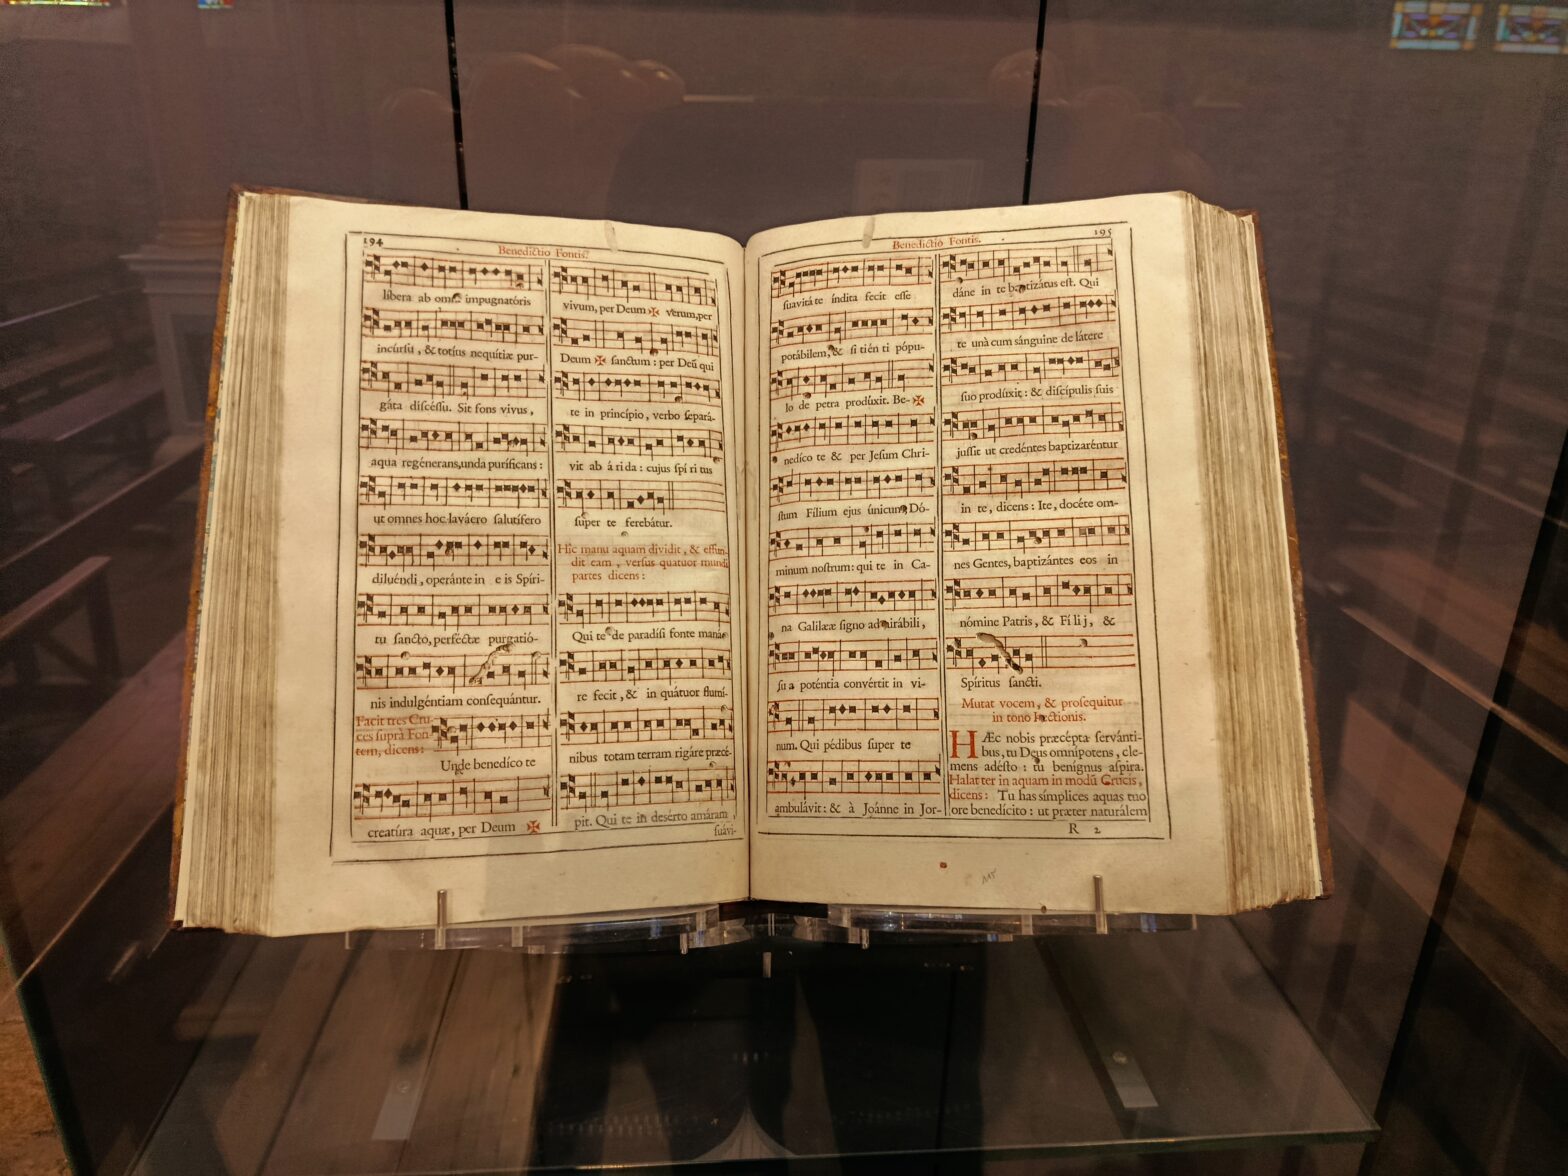 194
Benedictio Fontis.
libera ab omni impugnatóris
incúrsu, & totíus nequítiæ pur-
gáta discéssu. Sit fons vivus,
aqua regénerans, unda puríficans:
ut omnes hoc lavácro salutífero
diluéndi, operánte in e is Spíri-
tu sancto, perféctæ purgatió-
nis indulgéntiam consequántur.
Facit tres Cru-
ces suprà Fon-
tem, dicens:
Unde benedíco te
creatúra aquæ, per Deum ✠
vivum, per Deum ✠ verum, per
Deum ✠ sanctum: per Deū qui
te in princípio, verbo separá-
vit ab á ri da: cujus spí ri tus
super te ferebátur.
Hic manu aquam dividit, & effun-
dit eam, versus quatuor mundi
partes dicens:
Qui te de paradísi fonte maná-
re fecit, & in quátuor flumí-
nibus totam terram rigáre præcé-
pit. Qui te in deserto amáram
suávi-
195
Benedictio Fontis.
suavitá te índita fecit esse
potábilem, & si tién ti pópu-
lo de petra prodúxit. Be- ✠
nedíco te & per Jesum Chri-
stum Fílium ejus únicum Dó-
minum nostrum: qui te in Ca-
na Galilææ signo admirábili,
su a poténtia convértit in vi-
num. Qui pédibus super te
ambulávit: & à Joánne in Jor-
dáne in te baptizátus est. Qui
te unà cum sánguine de látere
suo prodúxit; & discípulis suis
jussit ut credéntes baptizaréntur
in te, dicens: Ite, docéte om-
nes Gentes, baptizántes eos in
nómine Patris, & Fílij, &
Spíritus sancti.
Mutat vocem, & prosequitur
in tono lectionis.
HÆc nobis præcépta servánti-
bus, tu Deus omnípotens, cle-
mens adésto: tu benígnus aspíra.
Halat ter in aquam in modū Crucis,
dicens: Tu has símplices aquas tuo
ore benedícito: ut præter naturálem
R 2